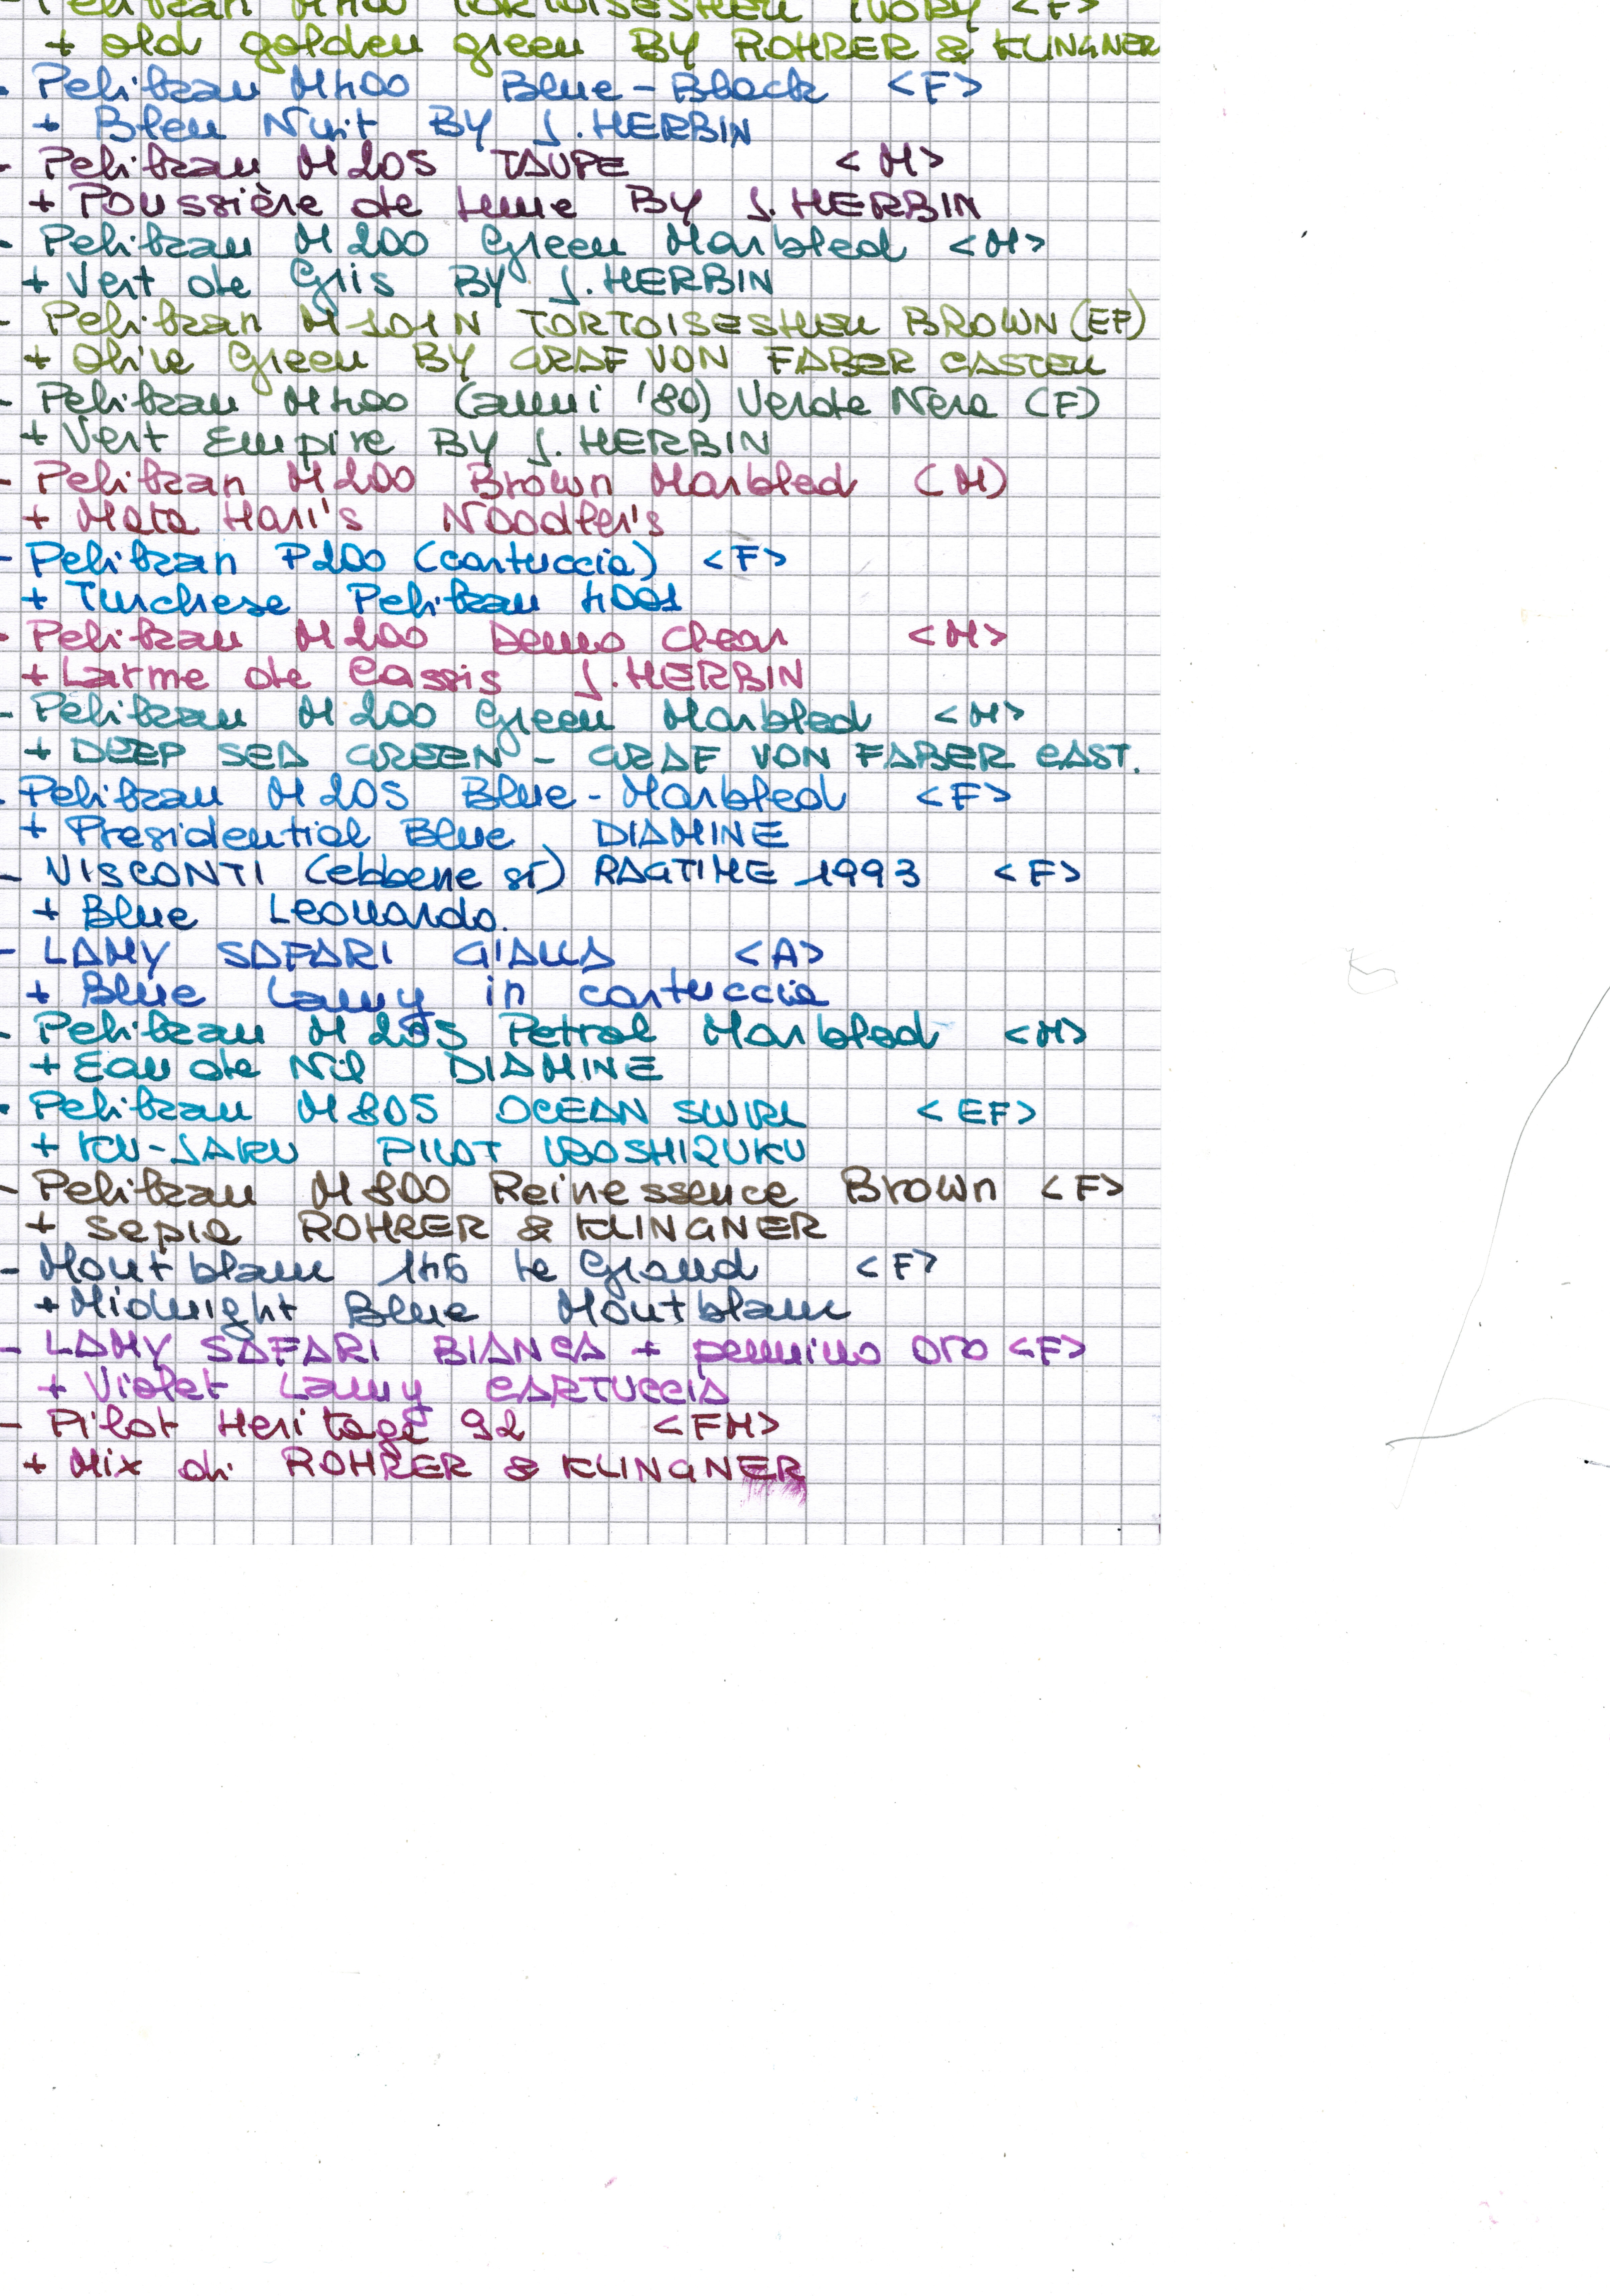 - Pelikan M400 TORTOISESHELL IVORY <F>
+ old golden green BY ROHRER & KLINGNER
- Pelikan M400 Blue-Black <F>
+ Bleu Nuit BY J.HERBIN
- Pelikan M205 TAUPE <M>
+ Poussière de lune BY J.HERBIN
- Pelikan M200 Green Marbled <M>
+ Vert de Gris BY J.HERBIN
- Pelikan M101N TORTOISESHELL BROWN (EF)
+ Olive Green BY GRAF VON FABER CASTELL
- Pelikan M400 (anni '80) Verde Nera (F)
+ Vert Empire BY J.HERBIN
- Pelikan M200 Brown Marbled (M)
+ Mata Hari's Noodler's
- Pelikan P200 (cartuccia) <F>
+ Turchese Pelikan 4001
- Pelikan M200 Demo Clear <M>
+ Larme de Cassis J.HERBIN
- Pelikan M200 Green Marbled <M>
+ DEEP SEA GREEN - GRAF VON FABER CAST.
- Pelikan M205 Blue-Marbled <F>
+ Presidential Blue DIAMINE
- VISCONTI (ebbene sì) RAGTIME 1993 <F>
+ Blue Leonardo.
- LAMY SAFARI GIALLA <A>
+ Blue Lamy in cartuccia
- Pelikan M205 Petrol Marbled <M>
+ Eau de Nil DIAMINE
- Pelikan M805 OCEAN SWIRL <EF>
+ KU-JAKU PILOT IROSHIZUKU
- Pelikan M800 Reinessence Brown <F>
+ sepia ROHRER & KLINGNER
- Montblanc 146 le Grand <F>
+ Midnight Blue Montblanc
- LAMY SAFARI BIANCA + pennino oro <F>
+ Violet Lamy CARTUCCIA
- Pilot Heritage 92 <FM>
+ Mix di ROHRER & KLINGNER